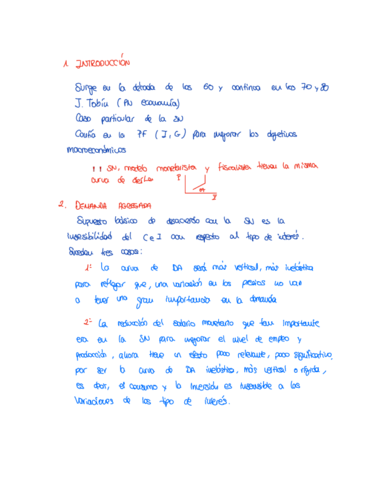 1. INTRODUCCIÓN
Surge en la década de los 60 y continua en los 70 y 80
J. Tobin (PN economía)
Caso particular de la SN
Confía en la PF (T, G) para mejorar los objetivos
macroeconómicos
!! SN, modelo monetarista y fiscalista tienen la misma
curva de
2. DEMANDA AGREGADA
Supuesto básico de desacuerdo con la SN es la
insensibilidad del C e I con respecto al tipo de interés.
Suceden tres cosas:
1º La curva de DA será más vertical, más inelástica
para reflejar que, una variación en los precios no van
a tener una gran importancia en la demanda
2º La reducción del salario monetario que tan importante
era en la SN para mejorar el nivel de empleo y
producción, ahora tiene un efecto poco relevante, poco significativo,
por ser la curva de DA inelástica, más vertical o rígida,
es decir, el consumo y la inversión es insensible a las
variaciones de los tipo de interés.